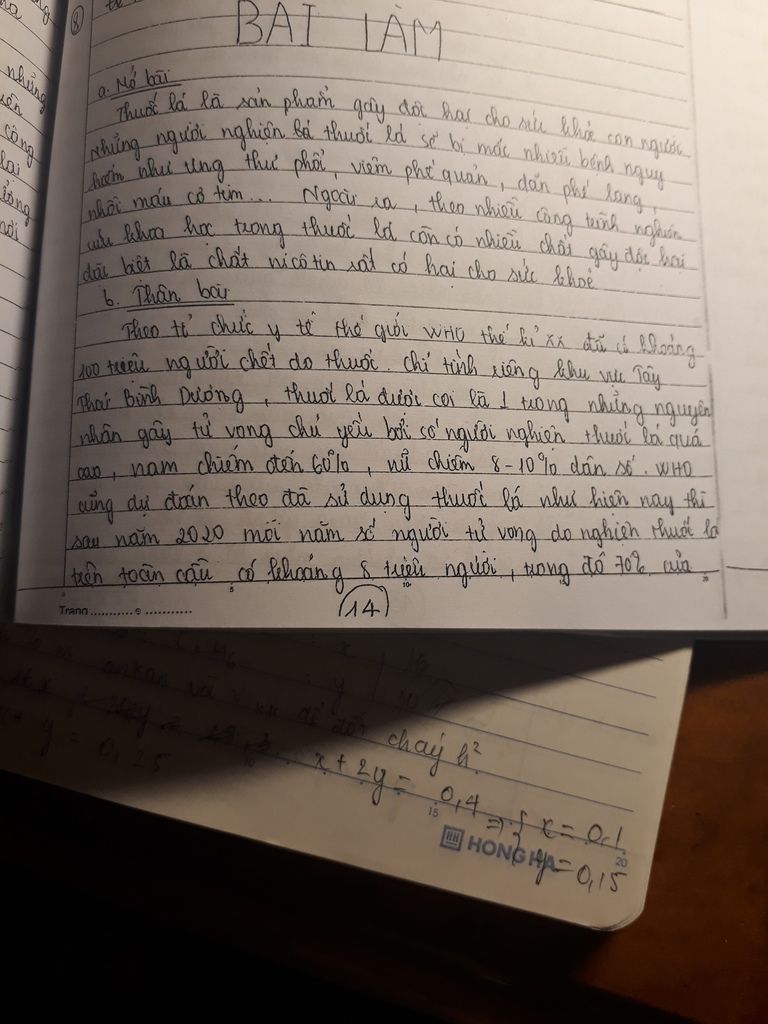 8
BÀI LÀM
a. Mở bài
Thuốc lá là sản phẩm gây độc hại cho sức khỏe con người.
Những người nghiện lá thuốc lá sẽ bị mắc nhiều bệnh nguy
hiểm như ung thư phổi, viêm phế quản, dãn phế nang,
nhồi máu cơ tim... Ngoài ra, theo nhiều công trình nghiên
cứu khoa học trong thuốc lá còn có nhiều chất gây độc hại
đặc biệt là chất nicôtin rất có hại cho sức khoẻ
b. Thân bài
Theo tổ chức y tế thế giới WHO thế kỉ XX đã có khoảng
100 triệu người chết do thuốc. Chỉ tính riêng khu vực Tây
Thái Bình Dương, thuốc lá được coi là 1 trong những nguyên
nhân gây tử vong chủ yếu bởi số người nghiện thuốc lá quá
cao, nam chiếm đến 60%, nữ chiếm 8-10% dân số. WHO
cũng dự đoán theo đã sử dụng thuốc lá như hiện nay thì
sau năm 2020 mỗi năm số người tử vong do nghiện thuốc lá
trên toàn cầu có khoảng 8 triệu người, trong đó 70% của
Trang
14
cháy h²
y = 0,25
x + 2y = 0,4 => { x = 0,1
y = 0,15
HONG HA
những
công
lại